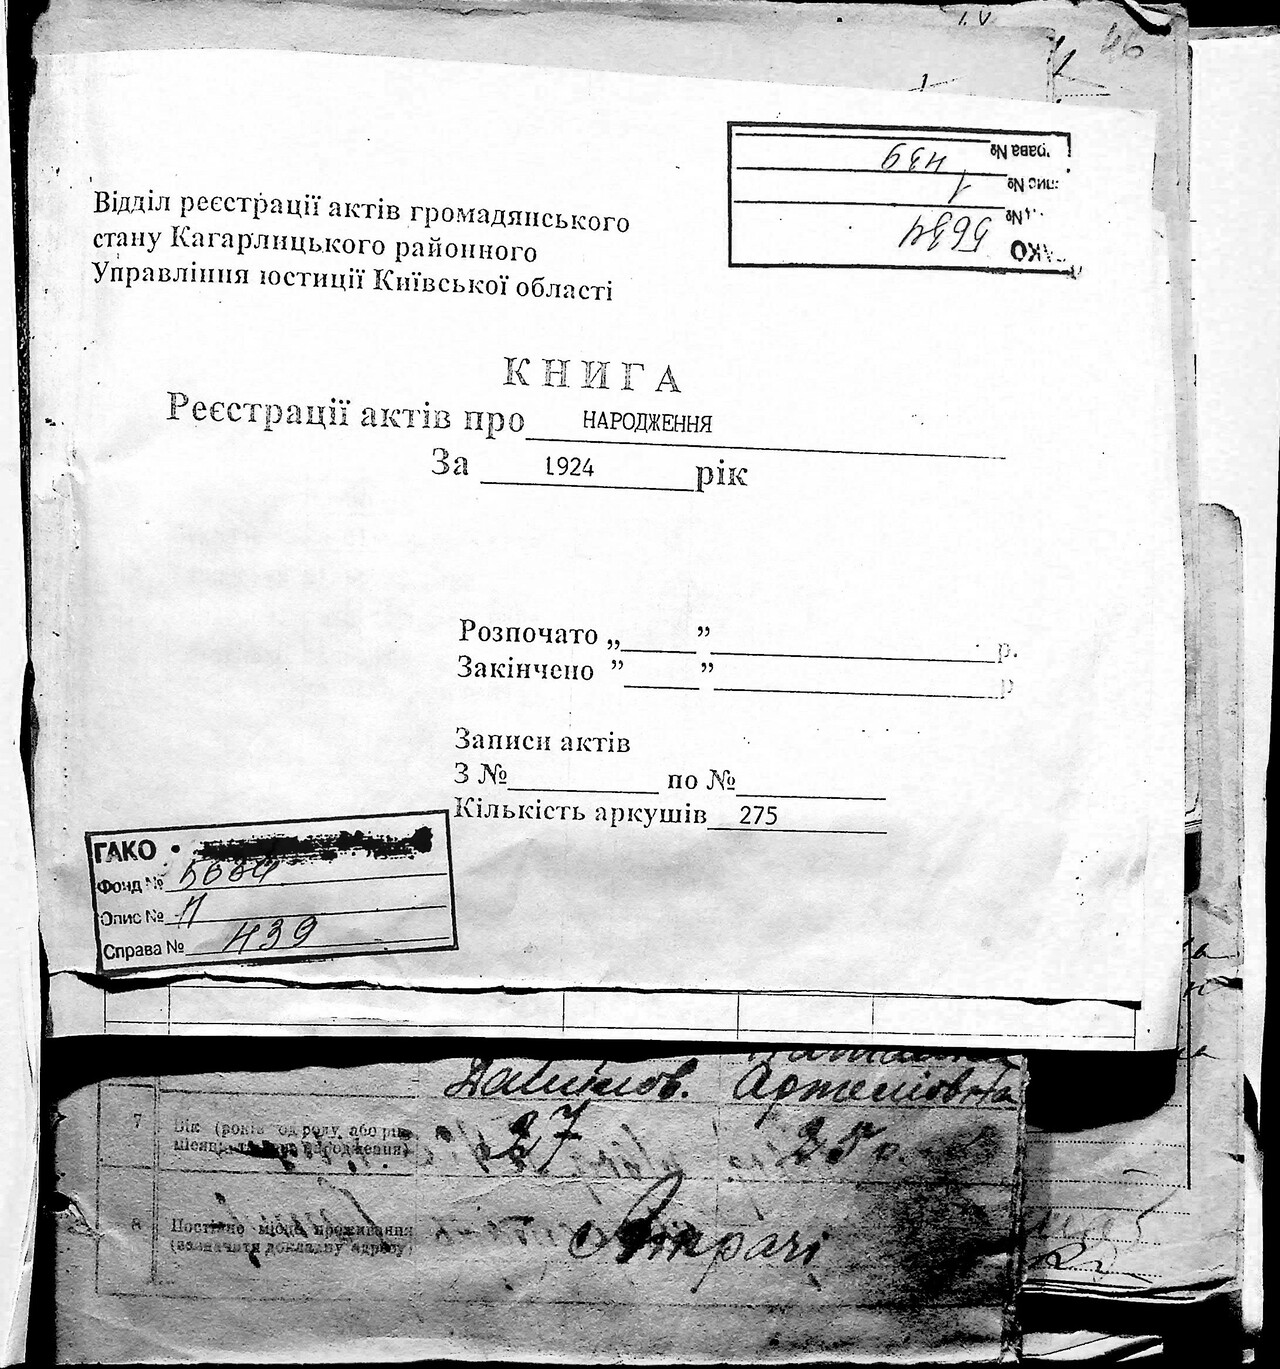 46
ГАКО
№ 5634
опис № 1
справа № 439
Відділ реєстрації актів громадянського
стану Кагарлицького районного
Управління юстиції Київської області
КНИГА
Реєстрації актів про НАРОДЖЕННЯ
За 1924 рік
Розпочато „ ” р.
Закінчено ” ” р
Записи актів
З № по №
Кількість аркушів 275
ГАКО •
Фонд № 5634
Опис № 1
Справа № 439
Данилов. Артемівна
7 Вік (років од роду, або рік, місяць народження) 27 25 р.
8 Постійне місце проживання
(зазначити докладну адресу)